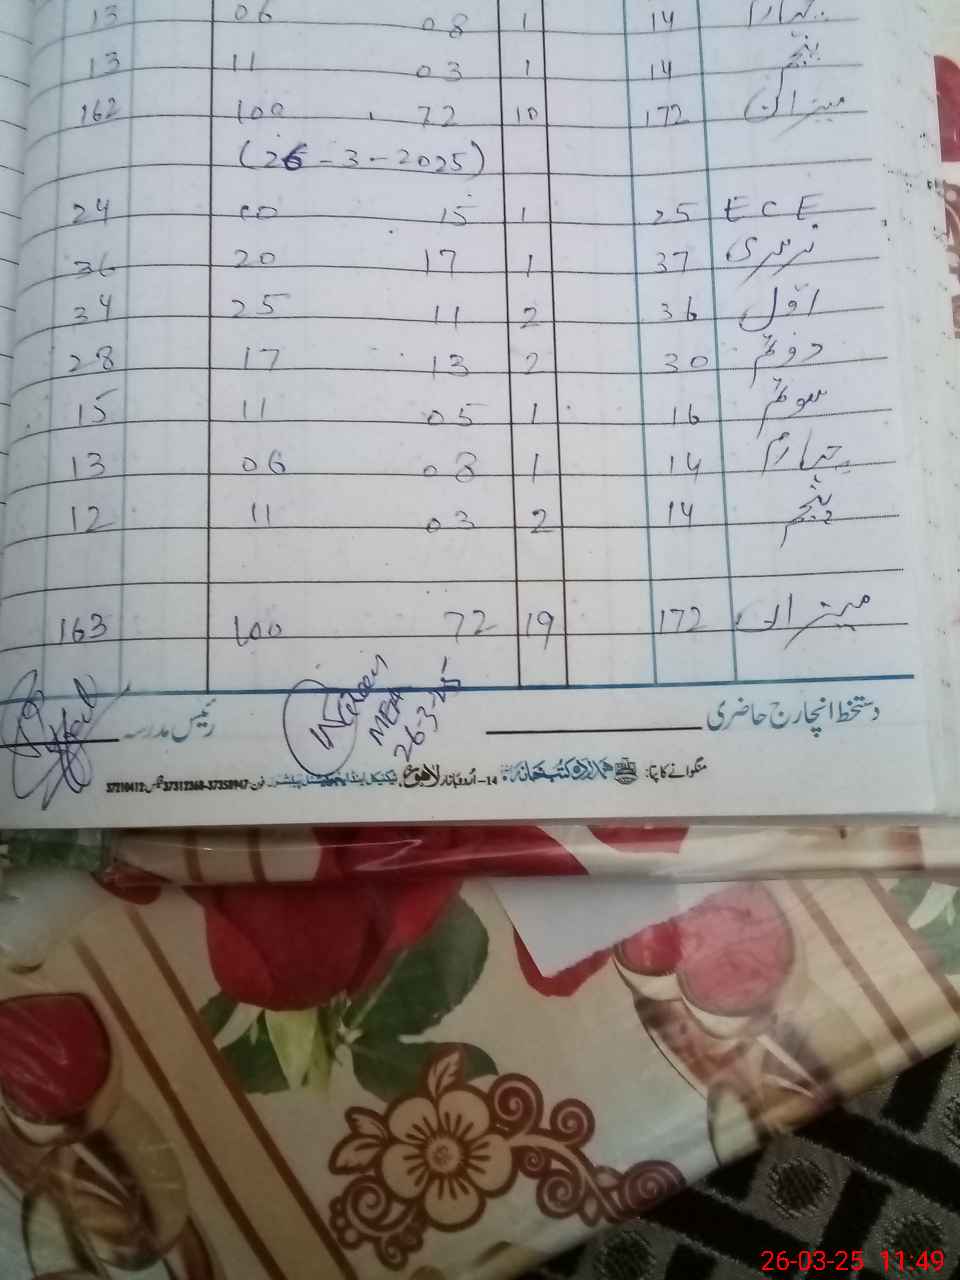 چہارم 14 1 08 06 13
پنجم 14 1 03 11 13
میزان 172 10 72 100 162
(26-3-2025)
ECE 25 1 15 10 24
نرسری 37 1 17 20 36
اوّل 36 2 11 25 34
دوئم 30 2 13 17 28
سوئم 16 1 05 11 15
چہارم 14 1 08 06 13
پنجم 14 2 03 11 12
میزان 172 19 72 100 163
دستخط انچارج حاضری
MEA
26-3-25
رئیس مدرسہ
منگوانے کا پتہ: ہمدرد کتب خانہ 14-اُردو بازار لاہور فون: 37350947-37312368 فیکس: 37210412
26-03-25 11:49